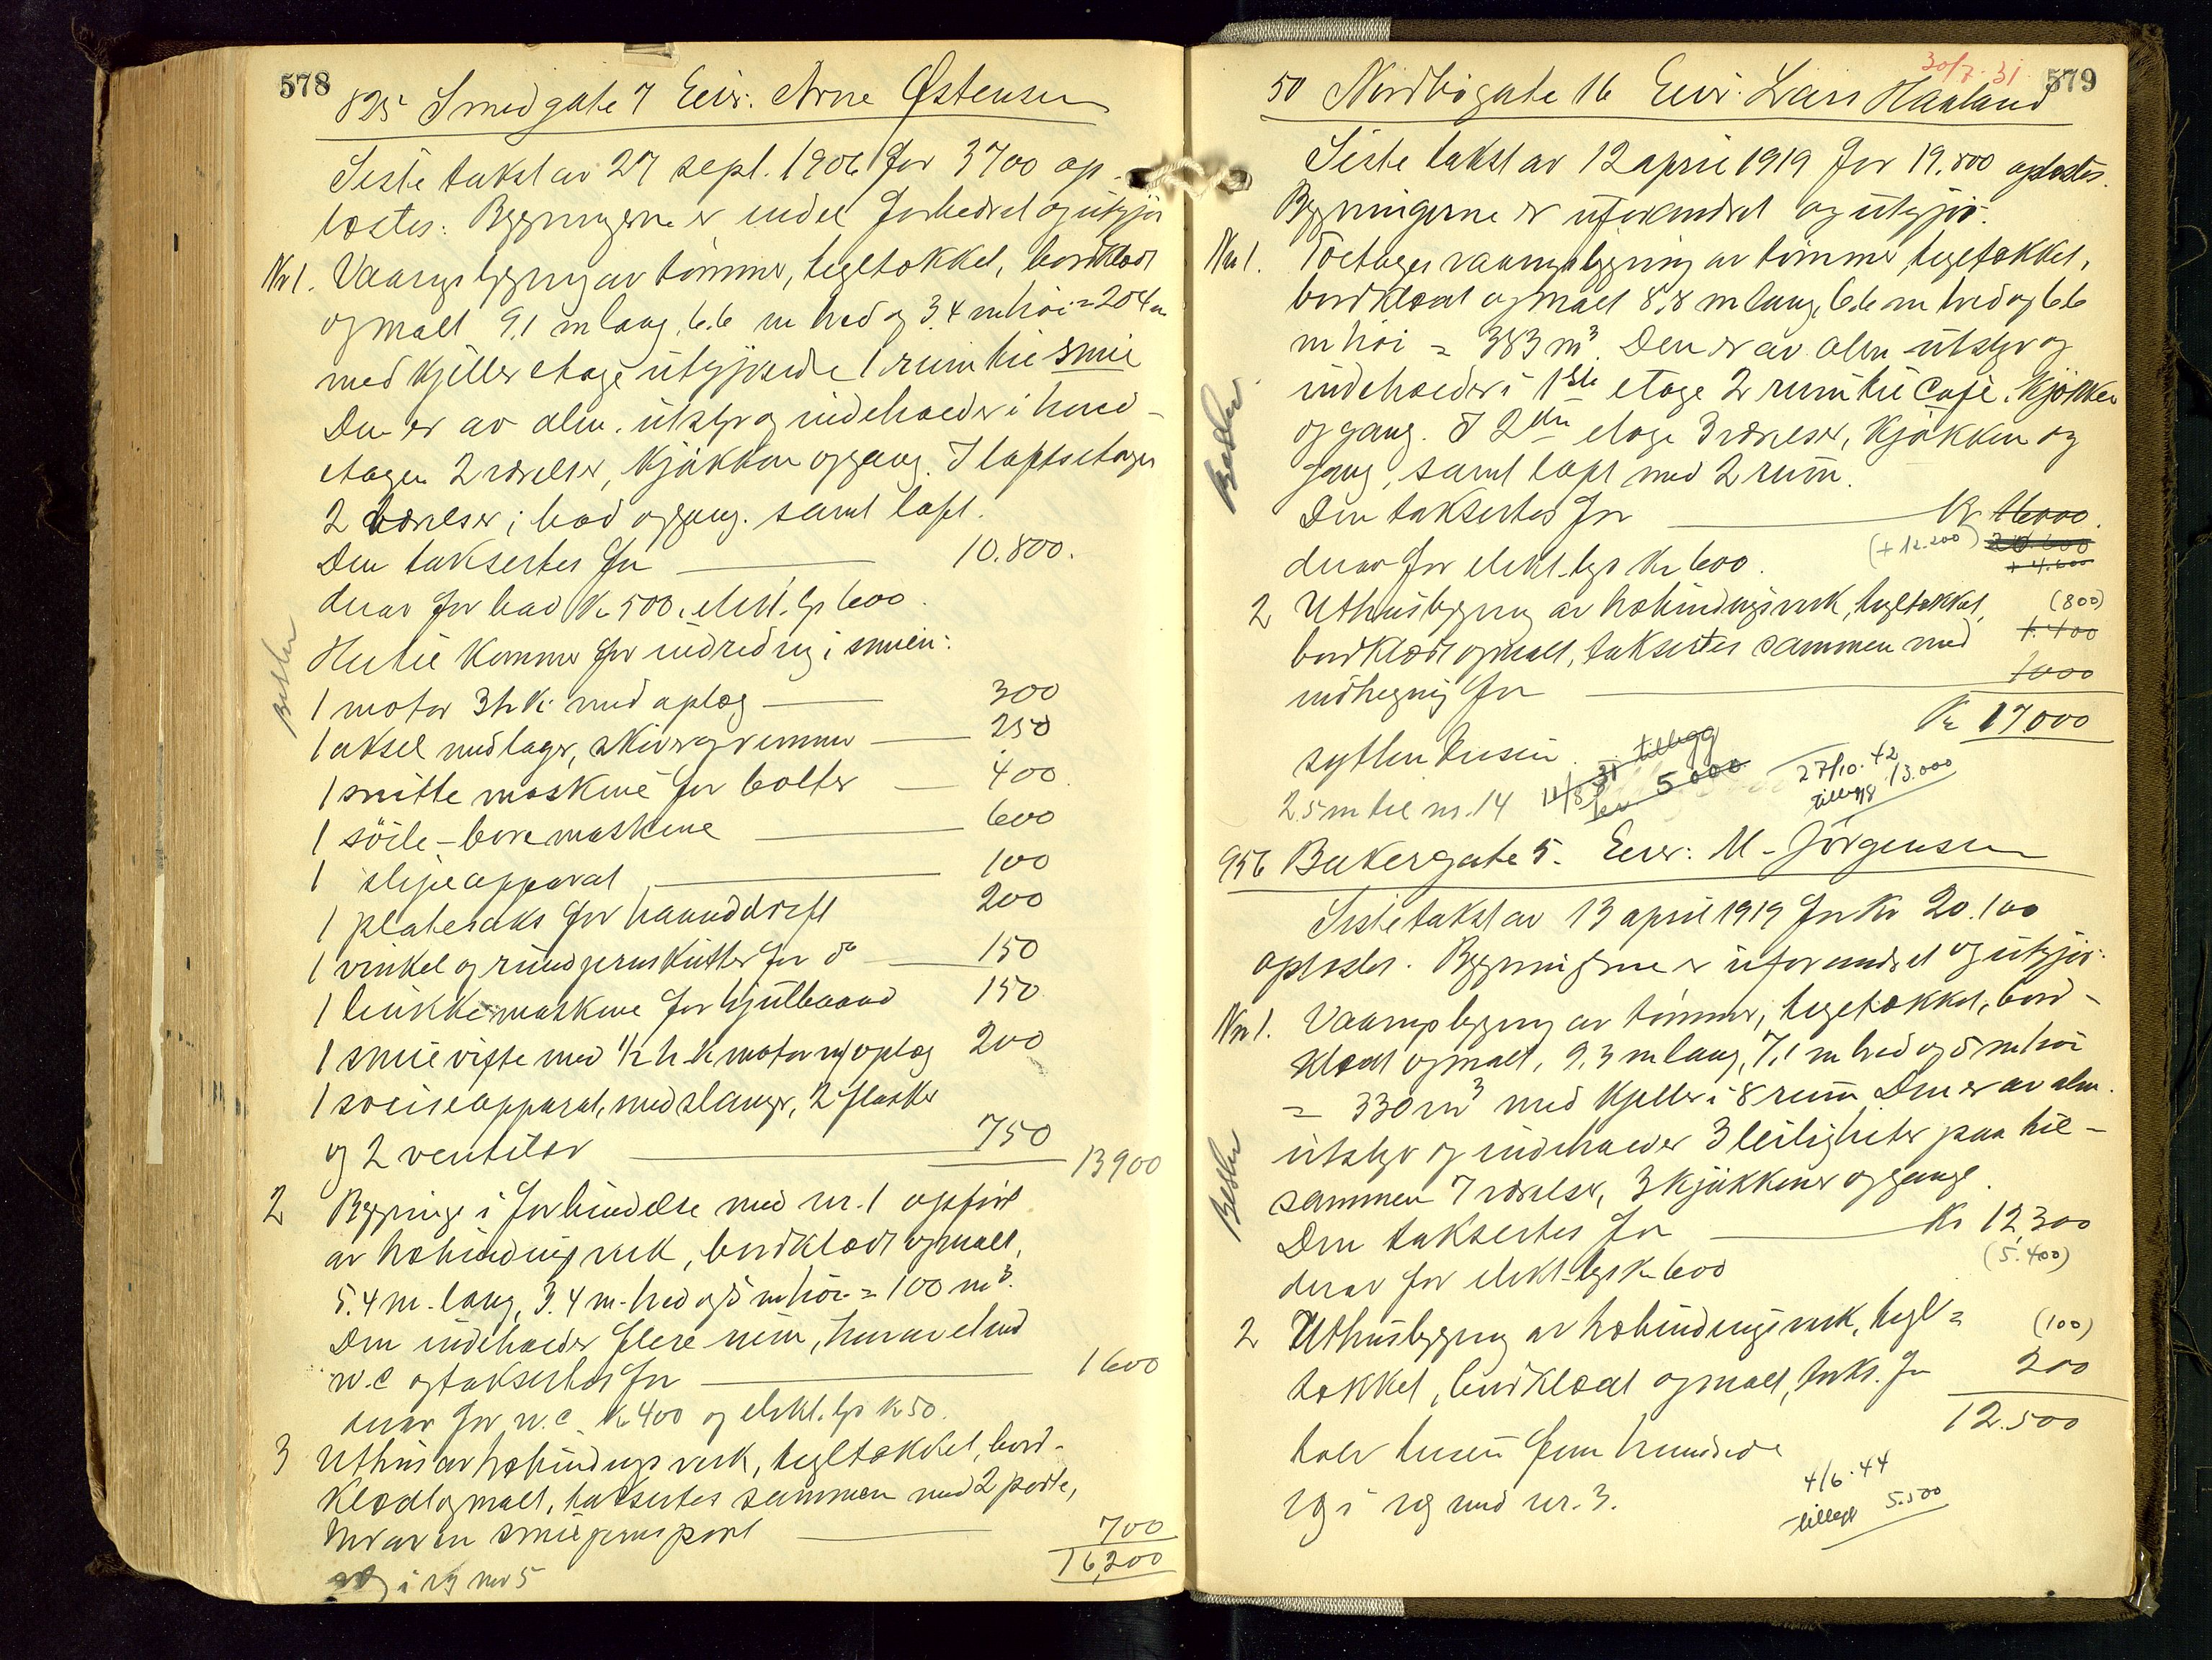 578
825 Smedgate 7 Eier: Arne Østensen
Siste takst av 27 sept. 1906 for 3700 op-
læstes: Bygningerne er endel forbedret og utgjør
Nr 1. Vaaningsbygning av tømmer, tegltækket, bordklædt
og malt 9,1 m lang, 6.6 m bred og 3.4 m høi = 204 m
med kjelleretage utgjørende 1 rum til smie
Den er av alm. utstyr og indeholder i hoved-
etagen 2 værelser, kjøkken og gang. I loftsetagen
2 værelser, bad og gang. samt loft.
Den takseres for 10.800.
derav for bad Kr 500, elekt. lys 600.
Hertil kommer for indredning i smien:
1 motor 3 h.k. med oplæg 300
1 aksel med lager, skiver og remmer 250
1 snitte maskine for bolter 400
1 søile-boremaskine 600
1 slipeapparat 100
1 platesaks for haanddrift 200
1 vinkel og rundjernskutter for do 150
1 bukkemaskine for hjulbaand 150
1 smievifte med ½ h.k motor m/oplæg 200
1 sveiseapparat, med slanger, 2 flasker
og 2 ventiler 750 13900
2 Bygning i forbindelse med nr. 1 opført
av utbindingsverk, bordklædt og malt,
5.4 m. lang, 3.4 m. bred og 5 m høi = 100 m³.
Den indeholder flere rum, hvorav et med
w.c og takseres for 1600
derav for w.c. Kr 400 og elekt. lys Kr 50.
3 Uthus av utbindingsverk, tegltækket, bord-
klædt og malt, takseres sammen med 2 porte,
hvorav en smijernsport 700
16,200
i ryg mer 5
Besikt
30/7.31
579
50 Nordbøgate 16 Eier: Lars Haaland
Siste takst av 12 april 1919 for 19.800 oplæstes.
Bygningerne er uforandret og utgjør:
Nr 1. Toetages vaaningsbygning av tømmer, tegltækket,
bordklædt og malt 8,8 m lang, 6.6 m bred og 6.6
m høi = 383 m³. Den er av alm utstyr og
indeholder i 1ste etage 2 rum til Café, kjøkken
og gang. I 2den etage 3 værelser, kjøkken og
gang, samt loft med 2 rum.
Den takseres for Kr 16000.
(+ 12.200) 20.600
derav for elekt. lys Kr 600. + 4.600
2 Uthusbygning av utbindingsverk, tegltækket, (800)
bordklædt og malt, takseres sammen med 1.400
indhegning for 1000
Kr 17000
sytten tusen.
11/8 31 tillegg
kr 5000
27/10.42
tillegg 13.000
2.5 m til nr. 14
956 Bakergate 5. Eier: M. Jørgensen
Siste takst av 13 april 1919 for Kr 20.100
oplæstes. Bygningerne er uforandret og utgjør:
Nr 1. Vaaningsbygning av tømmer, tegltækket, bord-
klædt og malt, 9,3 m lang, 7,1 m bred og 5 m høi
= 330 m³ med kjeller i 8 rum. Den er av alm.
utstyr og indeholder 3 leiligheter paa til-
sammen 7 værelser, 3 kjøkkener og gange.
Den takseres for Kr 12,300
(5.400)
derav for elekt. lys Kr 600
2 Uthusbygning av utbindingsverk, tegl= (100)
tækket, bordklædt og malt, taks. for 200
12.500
tolv tusen fem hundrede
4/6.44
tillegg 5.500
ryg i ryg med nr. 3.